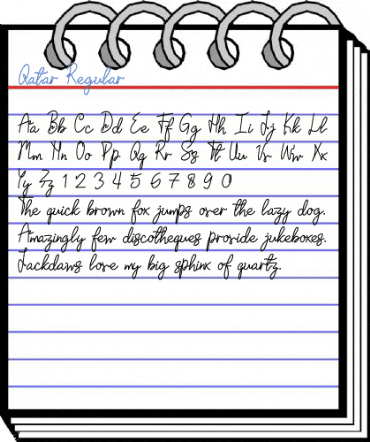 Qatar Regular
Aa Bb Cc Dd Ee Ff Gg Hh Ii Jj Kk Ll
Mm Nn Oo Pp Qq Rr Ss Tt Uu Vv Ww Xx
Yy Zz 1 2 3 4 5 6 7 8 9 0
The quick brown fox jumps over the lazy dog.
Amazingly few discotheques provide jukeboxes.
Jackdaws love my big sphinx of quartz.